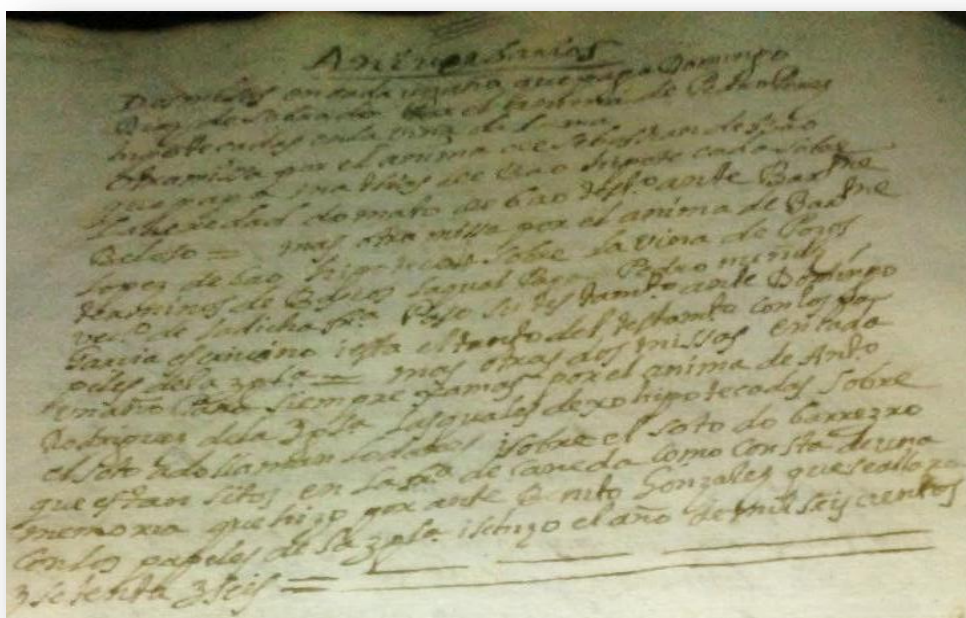 Anibersarios
Dos misas en cada un año que paga Domingo
Diaz de
hipotecados en la viña de
Otra misa por el anima de Sebastian de
que paga Matheos de Bao hipotecada sobre
la heredad do mato do bao testo ante Bartme
Beloso = mas otra missa por el anima de Bartme
Lopez de bao hipotecada sobre la viña de Pozos
terminos de la qual Paga Pedro
vecº de la dicha fra Paso su testamtº ante Domingo
Garcia escrivano i esta el tanto del testamto con los pap
eles de la yglª = mas otras dos missas en cada
un año Para siempre xamas por el anima de Antº
Rodriguez de la yglª las quales dexo hipotecadas sobre
el soto i sobre el soto do barreyro
que estan sitos en la fra de caneda como consta de una
memoria que hizo por ante Benito Gonzalez que se allara
con los papeles de la yglª i se hizo el año de mil seiscientos
y setenta y seis =